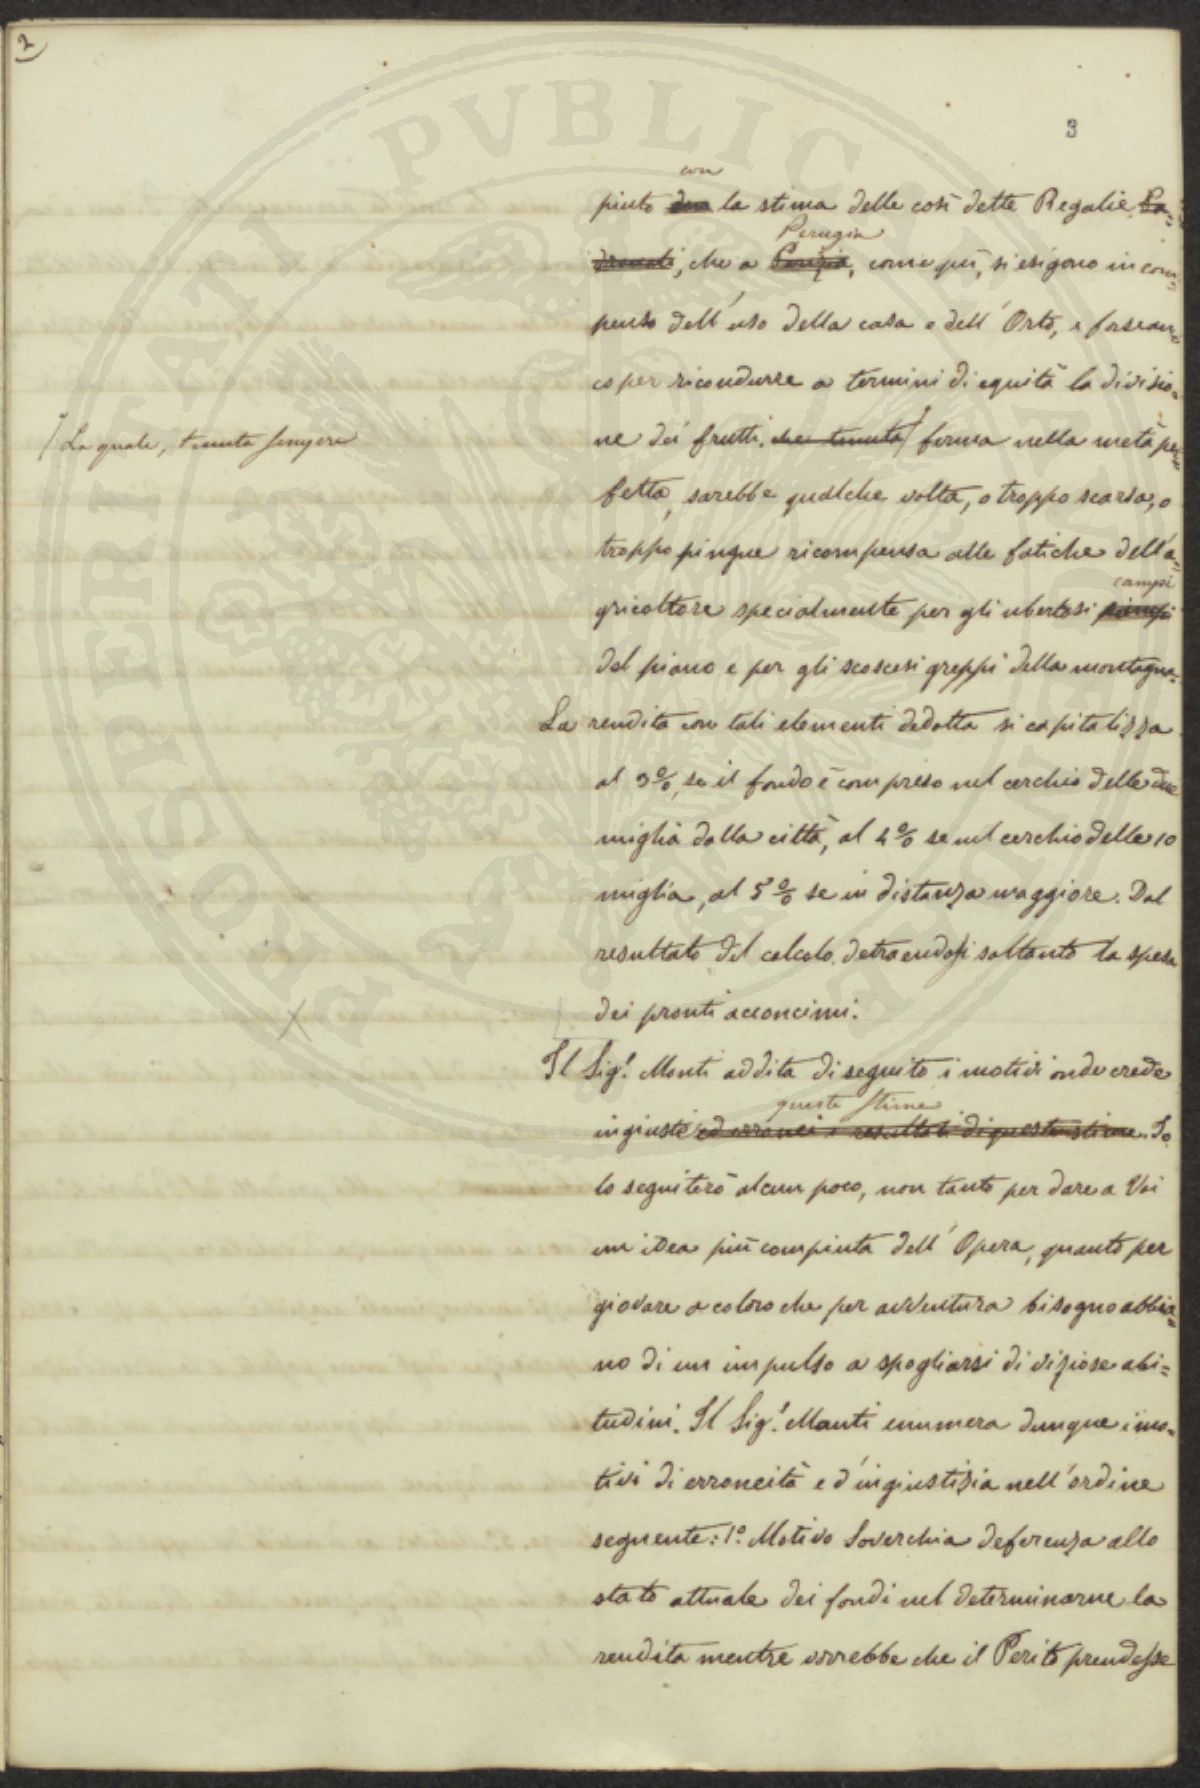 2
3
con
piuto dna la stima delle così dette Regalie Pa=
Perugia
dronali, che a Perizia, come quì, si esigono in com=
penso dell'uso della casa e dell'Orto, e forse an=
co per ricondurre a termini di equità la divisio=
/ La quale, tenuta sempre
ne dei frutti. che tenuta / ferma nella metà per=
fetta, sarebbe qualche volta, o troppo scarsa, o
troppo pingue ricompensa alle fatiche dell'a=
campi
gricoltore specialmente per gli ubertosi piani
del piano e per gli scoscesi greppi della montagna.
La rendita con tali elementi dedotta si capitalizza
al 3%, se il fondo è compreso nel cerchio delle due
miglia dalla città, al 4% se nel cerchio delle 10
miglia, al 5% se in distanza maggiore. Dal
resultato del calcolo detraendosi soltanto la spesa
dei pronti acconcimi.
Il Sig.r Monti addita di seguito i motivi onde crede
queste stime
ingiuste ed erronei i resultati di queste stime. Io
lo seguiterò alcun poco, non tanto per dare a Voi
un idea più compiuta dell'Opera, quanto per
giovare a coloro che per avventura bisogno abbia=
no di un impulso a spogliarsi di viziose abi=
tudini. Il Sig.r Monti enumera dunque i mo=
tivi di erroneità e d'ingiustizia nell'ordine
seguente: 1.o Motivo Soverchia deferenza allo
stato attuale dei fondi nel determinarne la
rendita mentre vorrebbe che il Perito prendesse
PROSPERITATI PVBLICAE AVGENDAE